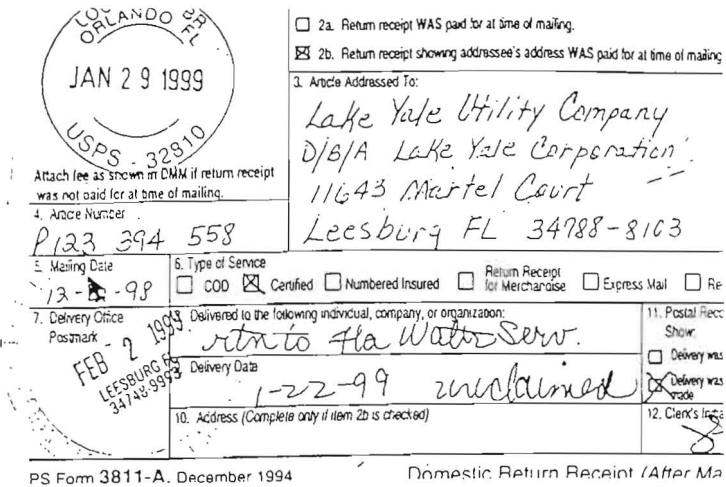 ORLANDO FL
JAN 29 1999
USPS - 32810
Attach fee as shown in DMM if return receipt
was not paid for at time of mailing.
2a. Return receipt WAS paid for at time of mailing.
2b. Return receipt showing addressee's address WAS paid for at time of mailing
3. Article Addressed To:
Lake Yale Utility Company
D/B/A Lake Yale Corporation
11643 Martel Court
Leesburg FL 34788-8103
4. Article Number
P123 394 558
5. Mailing Date
12- -98
6. Type of Service
COD Certified Numbered Insured Return Receipt for Merchandise Express Mail Re
7. Delivery Office
Postmark
FEB 2 1999
LEESBURG
34748-9998
Delivered to the following individual, company, or organization:
rtn to Fla Water Serv.
Delivery Date
1-22-99 unclaimed
10. Address (Complete only if item 2b is checked)
11. Postal Rec
Show:
Delivery was
Delivery was
made
12. Clerk's
PS Form 3811-A, December 1994
Domestic Return Receipt (After Ma